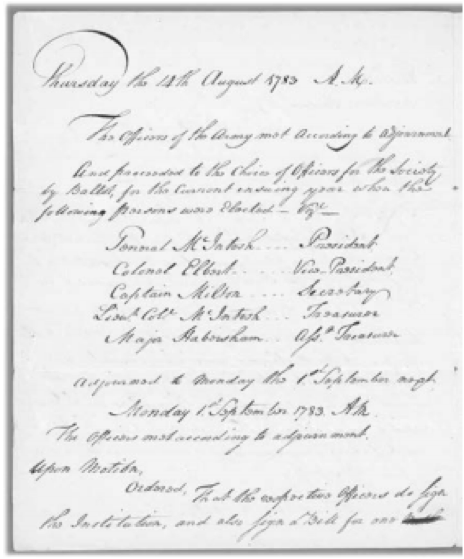 Thursday the 14th August 1783 A.M.
The Officers of the Army met according to adjournment
And proceeded to the choice of Officers for the Society
by Ballot, for the Current ensuing year when the
following Persons were Elected – Vizt
General McIntosh .... President
Colonel Elbert ..... Vice-President
Captain Milton .... Secretary
Lieut Colo McIntosh .... Treasurer
Major Habersham .. Asst Treasurer
Adjourned to Monday the 1st September next
Monday 1st September 1783. AM
The Officers met according to adjournment.
Upon Motion,
Ordered, That the respective Officers do sign
the Institution, and also sign a Bill for one